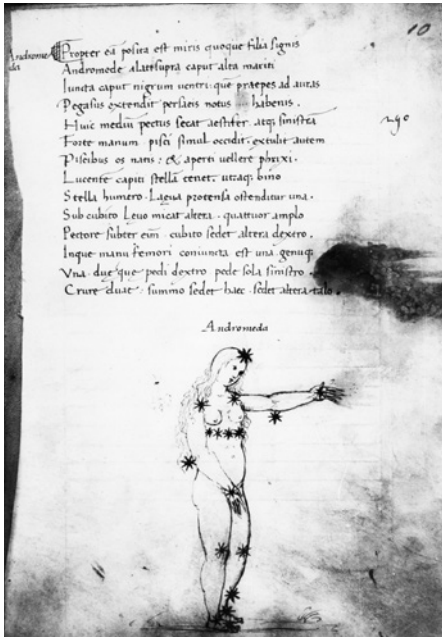 10
Androme
da
Propter eā posita est miris quoque filia signis
Andromede alatē supra caput alta mariti
Iuncta caput nigrum uentri: que praepes ad auras
Pegasus extendit persaeis notus habenis.
Huic mediū pectus secat aestifer atq; sinistrā
Forte manum pisci simul occidit. extulit autem
Piscibus os nans: & aperti uellere phrixi.
Lucente capiti stellā tenet. utraq; bino
Stella humero. Laeua protensa ostenditur una.
Sub cubito Leuo micat altera. quattuor amplo
Pectore subter eim cubito sedet altera dextro.
Inque manu femori coniuncta est una. genuq;
Vna. due que pedi dextro pede sola sinistro.
Crure duae: summo sedet haec. sedet altera talo.
Andromeda